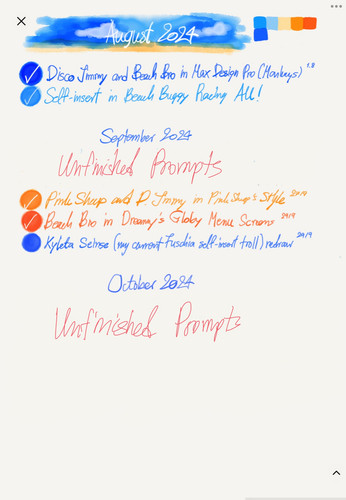 August 2024
Disco Jimmy and Beach Bro in Max Design Pro (Monkeys) 1.8
Self-insert in Beach Buggy Racing AU!
September 2024
Unfinished Prompts
Pink Sheep and D. Jimmy in Pink Sheep's Style 29/9
Beach Bro in Dreamy's Globey Menu Screens 29/9
Kyleta Seirse (my current Fuschia self-insert troll) redraw 29/9
October 2024
Unfinished Prompts